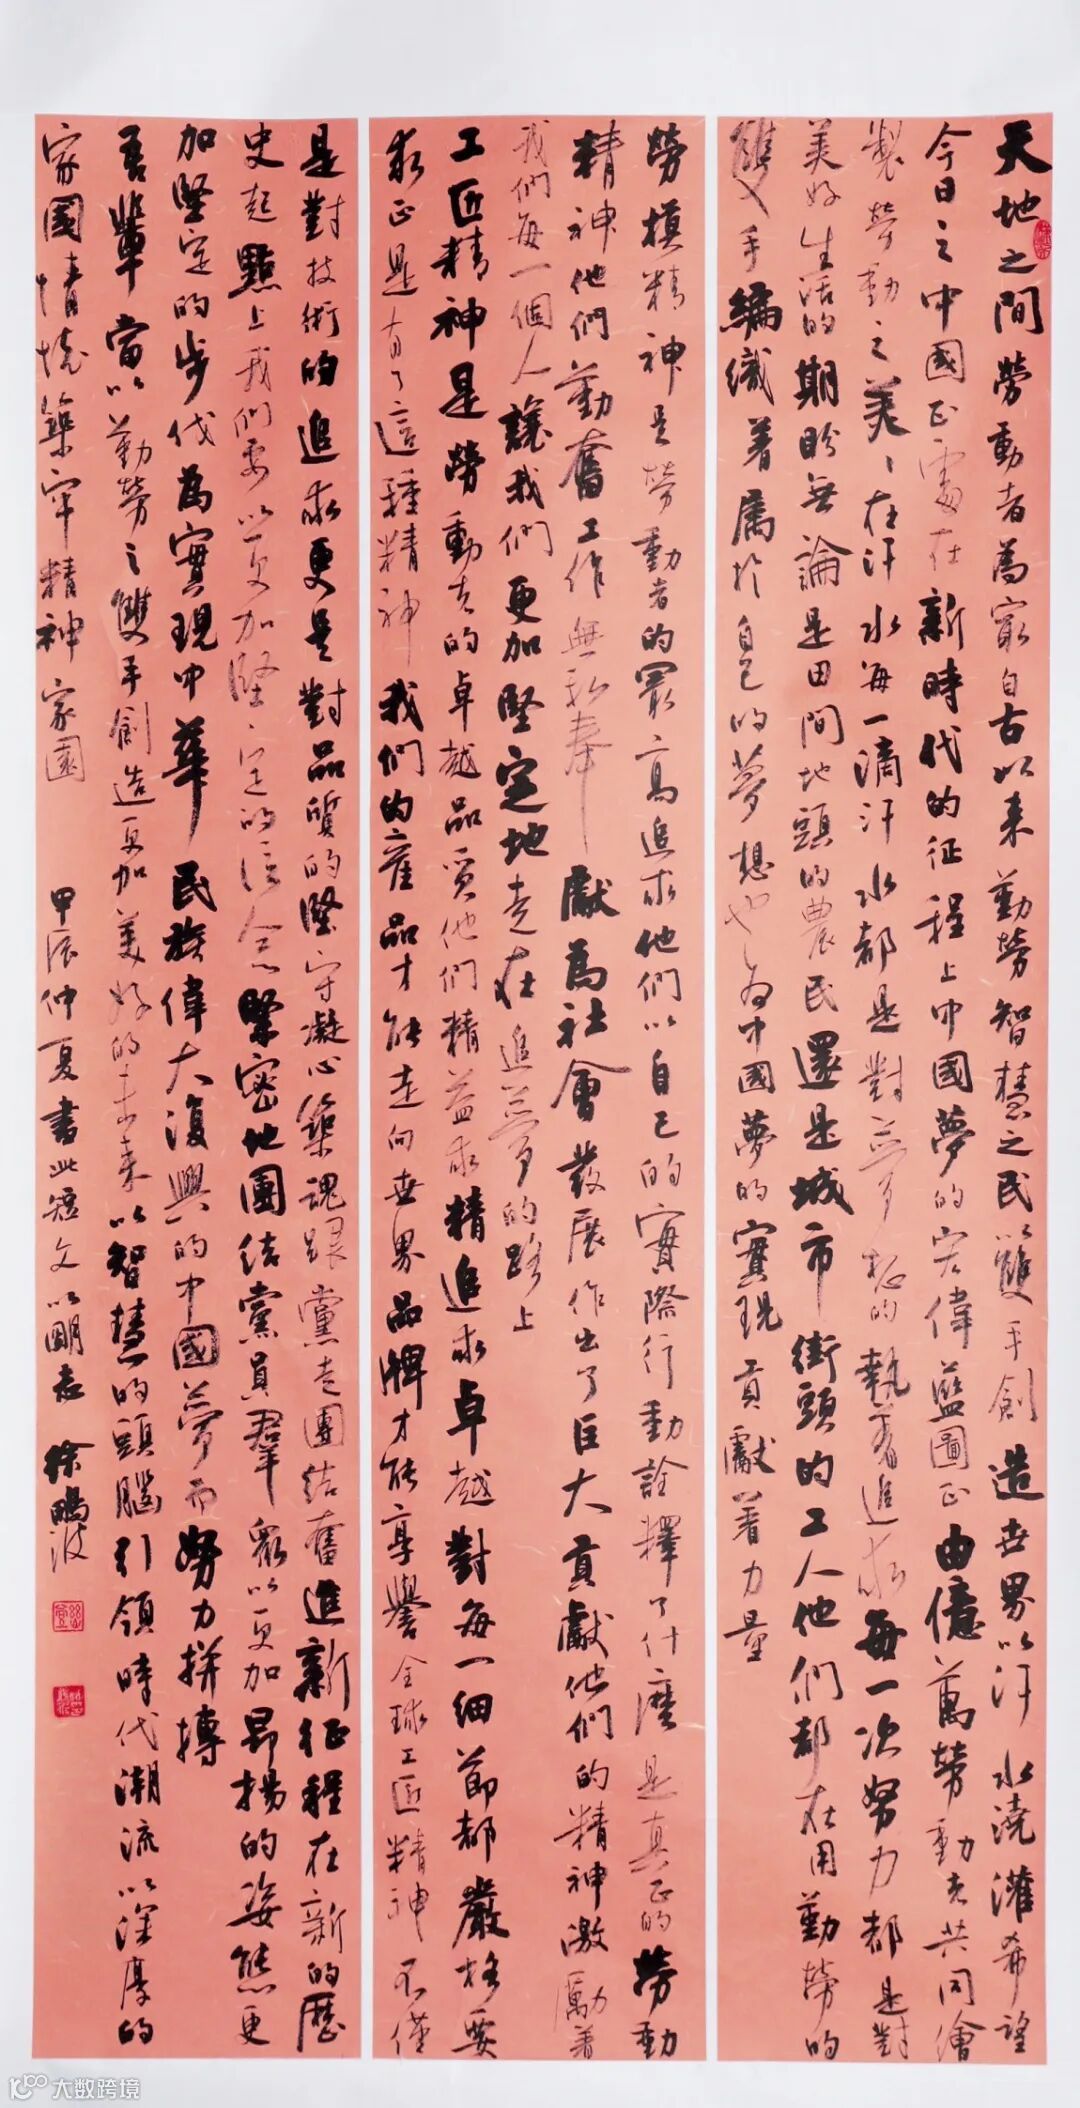 天地之間勞動者為最自古以來勤勞智慧之民以雙手創造世界以汗水澆灌希望
今日之中國正處在新時代的征程上中國夢的宏偉藍圖正由億萬勞動者共同繪
製勞動之美美在汗水每一滴汗水都是對夢想的執著追求每一次努力都是對
美好生活的期盼無論是田間地頭的農民還是城市街頭的工人他們都在用勤勞的
雙手編織着屬於自己的夢想也為中國夢的實現貢獻着力量
勞模精神是勞動者的最高追求他們以自己的實際行動詮釋了什麼是真正的勞動
精神他們勤奮工作無私奉獻為社會發展作出了巨大貢獻他們的精神激勵着
我們每一個人讓我們更加堅定地走在追夢的路上
工匠精神是勞動者的卓越品質他們精益求精追求卓越對每一細節都嚴格要
求正是有了這種精神我們的產品才能走向世界品牌才能享譽全球工匠精神不僅
是對技術的追求更是對品質的堅守凝心築魂跟黨走團結奮進新征程在新的歷
史起點上我們要以更加堅定的信念緊密地團結黨員群眾以更加昂揚的姿態更
加堅定的步伐為實現中華民族偉大復興的中國夢而努力拼搏
吾輩當以勤勞之雙手創造更加美好的未來以智慧的頭腦引領時代潮流以深厚的
家國情懷築牢精神家園 甲辰仲夏書此短文以明志 徐鵬波
大数跨境